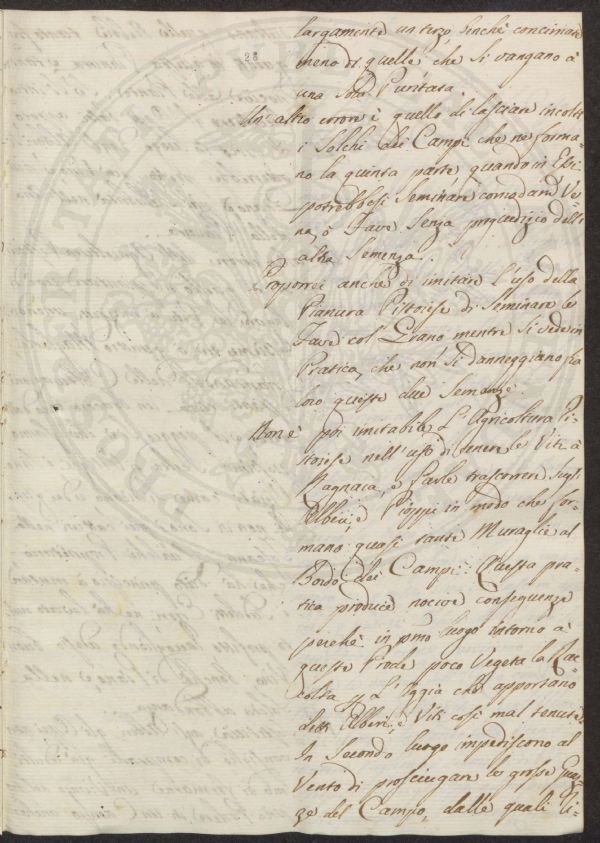 28
largamente un terzo, benchè concimate
meno di quelle che si vangano à
una sola Puntata.
Un' altro errore è quello di lasciare incolti
i Solchi dei Campi che ne forma=
no la quinta parte, quando in Essi
potrebbesi Seminare comodam.e Ve=
na, ò Fave Senza pregiudizio dell'
altra Semenza.
Proporrei anche di imitare l'uso della
Pianura Pistoiese di Seminare le
Fave col Grano mentre Si vede in
Pratica, che non Si danneggiano fra
loro queste due Semenze.
Non è poi imitabile l'Agricoltura Pi=
stoiese nell'uso di tenere le Viti à
Ragnaia, e farle trascorrere Sugli
Alberi, e Pioppi in modo che for=
mano quasi tante Muraglie al
Bordo dei Campi. Questa pra=
tica produce nocive conseguenze
perchè in pmo luogo intorno à
queste Prode poco Vegeta la Rac=
colta p L'Uggia che apportano
detti Alberi, e Viti così mal tenute
In Secondo luogo impediscono al
Vento di prosciugare le grosse
del Campo, dalle quali li=